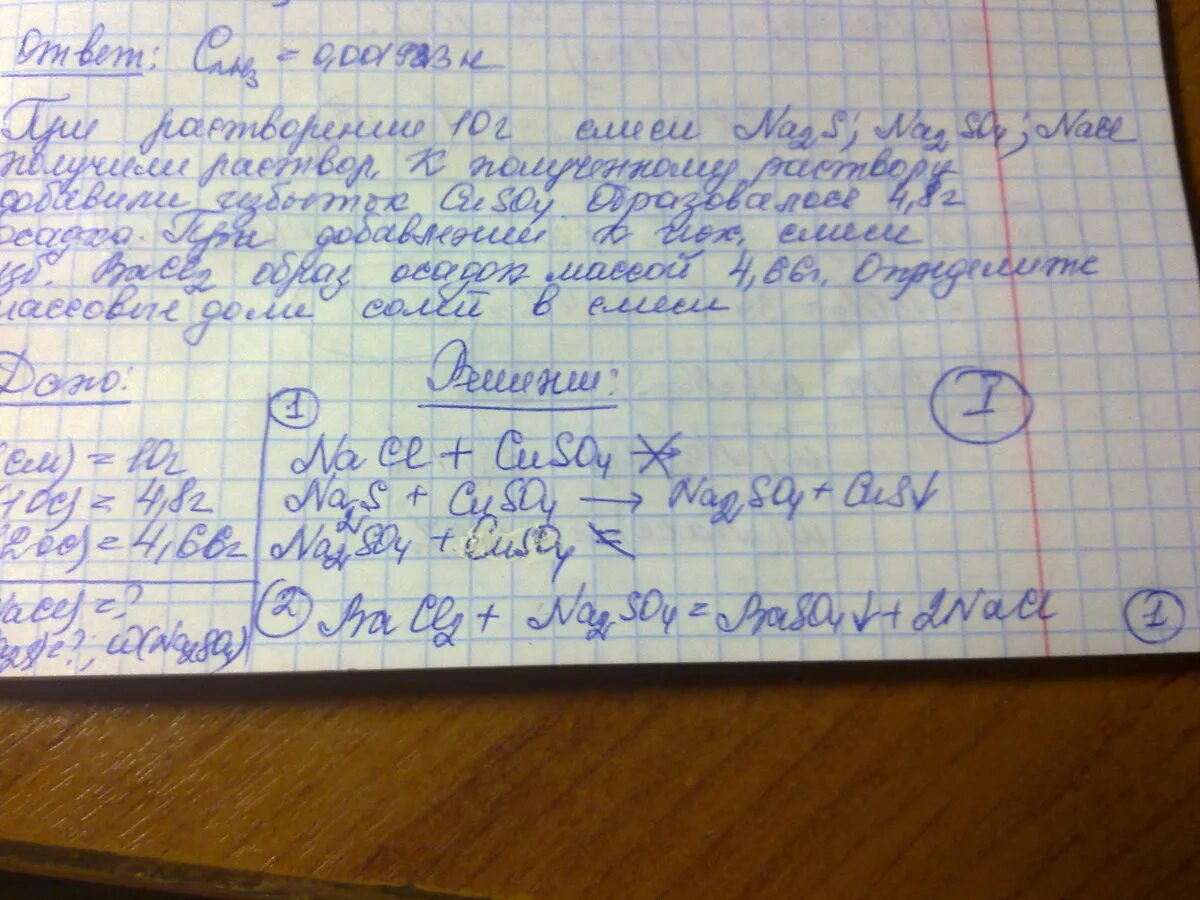 Ответ: C = 0,001 н
При растворении 10г смеси Na₂S; Na₂SO₄; NaCl
получили раствор. К полученному раствору
добавили избыток CuSO₄. Образовалось 4,8г
осадка. При добавлении к исх. смеси
изб. BaCl₂ образ осадок массой 4,66г. Определите
массовые доли солей в смеси
Дано: Решение:
① I
(см) = 10г NaCl + CuSO₄
1ос) = 4,8г Na₂S + CuSO₄ → Na₂SO₄ + CuS↓
(2ос) = 4,66г Na₂SO₄ + CuSO₄ =
NaCl) = ? ② BaCl₂ + Na₂SO₄ = BaSO₄↓ + 2NaCl ①
a₂S) = ?, ω(Na₂SO₄)